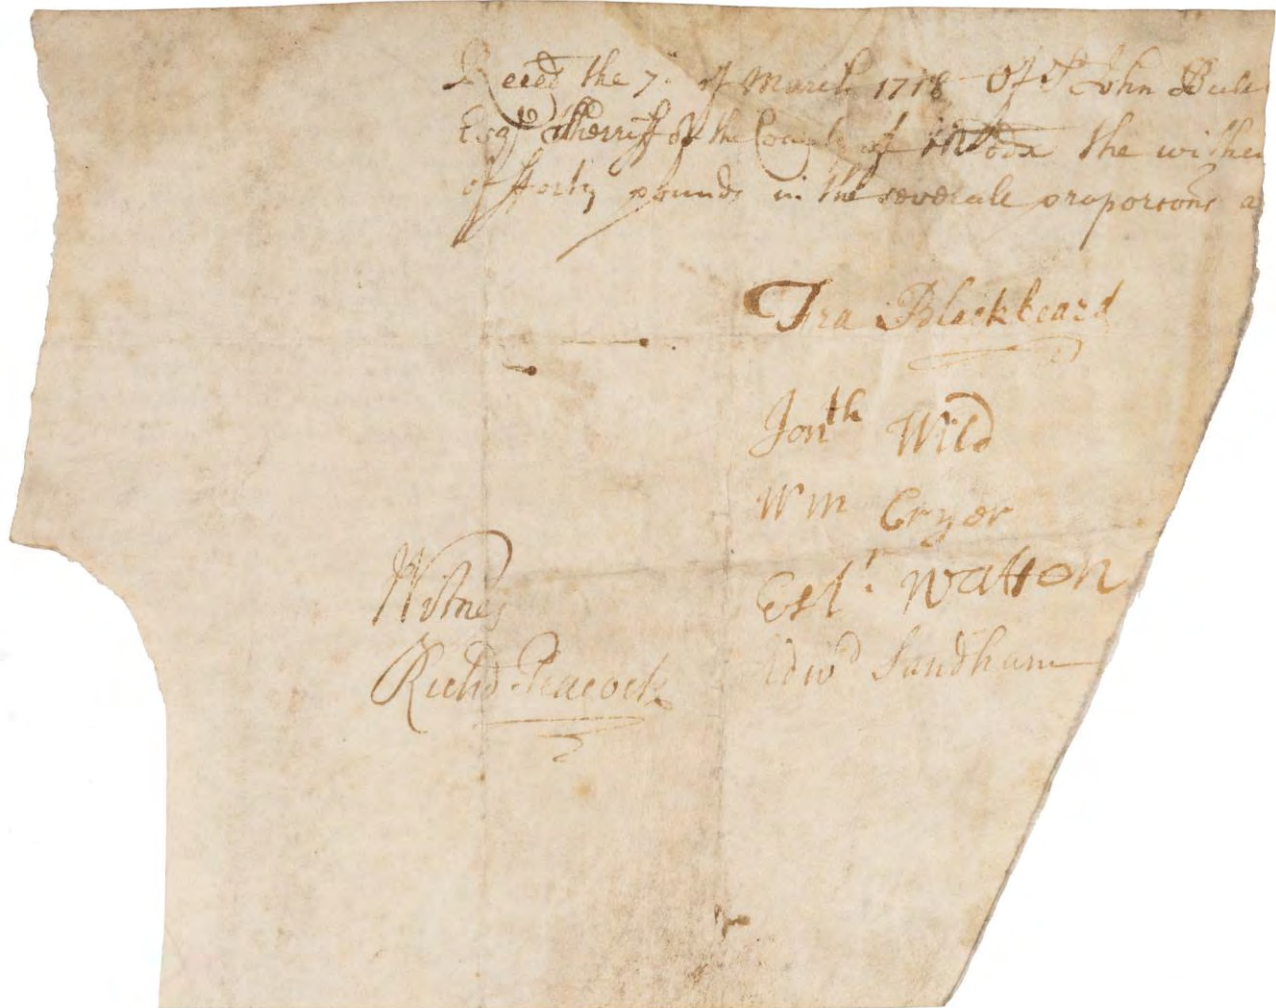 Reced the 7th of March 1718 Of Sr John Bule
Esqr Sherriff of the County of Middx the within
of fforty pounds in the severale proporcons a
Fra Blackbeard
Jonth Wild
Wm Cryer
Estr Watton
Edwd Sandham
Witnes
Richd Peacock